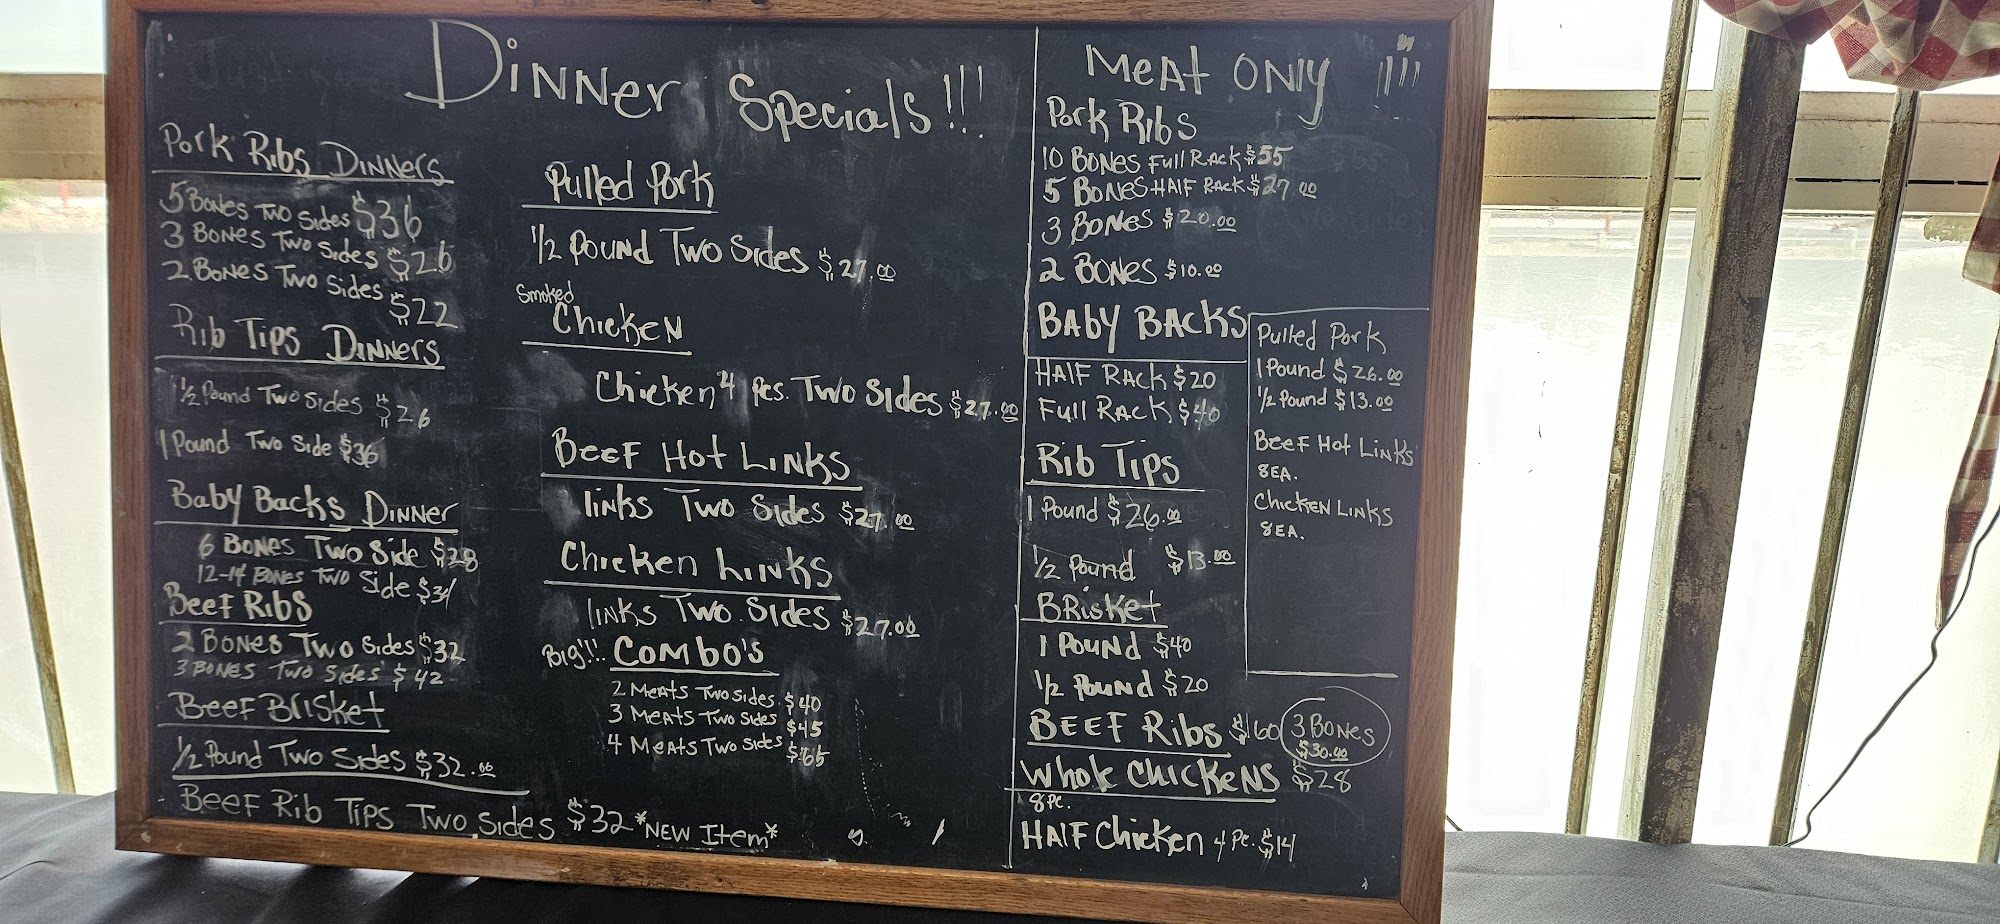 Dinner Specials!!!
Pork Ribs Dinners
5 Bones Two Sides $36
3 Bones Two Sides $26
2 Bones Two Sides $22
Rib Tips Dinners
1/2 Pound Two Sides $26
1 Pound Two Side $36
Baby Backs Dinner
6 Bones Two Side $28
12-14 Bones Two Side
Beef Ribs
2 Bones Two Sides $32
3 Bones Two Sides $42
Beef Brisket
1/2 Pound Two Sides $32.00
Beef Rib Tips Two Sides $32 *New Item*
Pulled Pork
1/2 Pound Two Sides $27.00
Smoked
Chicken
Chicken 4 pcs. Two Sides $27.00
Beef Hot Links
links Two Sides $27.00
Chicken Links
links Two Sides $27.00
Big!!! Combo's
2 Meats Two Sides $40
3 Meats Two Sides $45
4 Meats Two Sides
Meat Only !!!
Pork Ribs
10 Bones Full Rack $55
5 Bones Half Rack $27.00
3 Bones $20.00
2 Bones $10.00
Baby Backs
Half Rack $20
Full Rack $40
Rib Tips
1 Pound $26.00
1/2 Pound $13.00
Brisket
1 Pound $40
1/2 Pound $20
Beef Ribs $60
3 Bones
$30.00
Whole Chickens $28
8 pc.
Half Chicken 4 Pc. $14
Pulled Pork
1 Pound $26.00
1/2 Pound $13.00
Beef Hot Links
8 EA.
Chicken Links
8 EA.